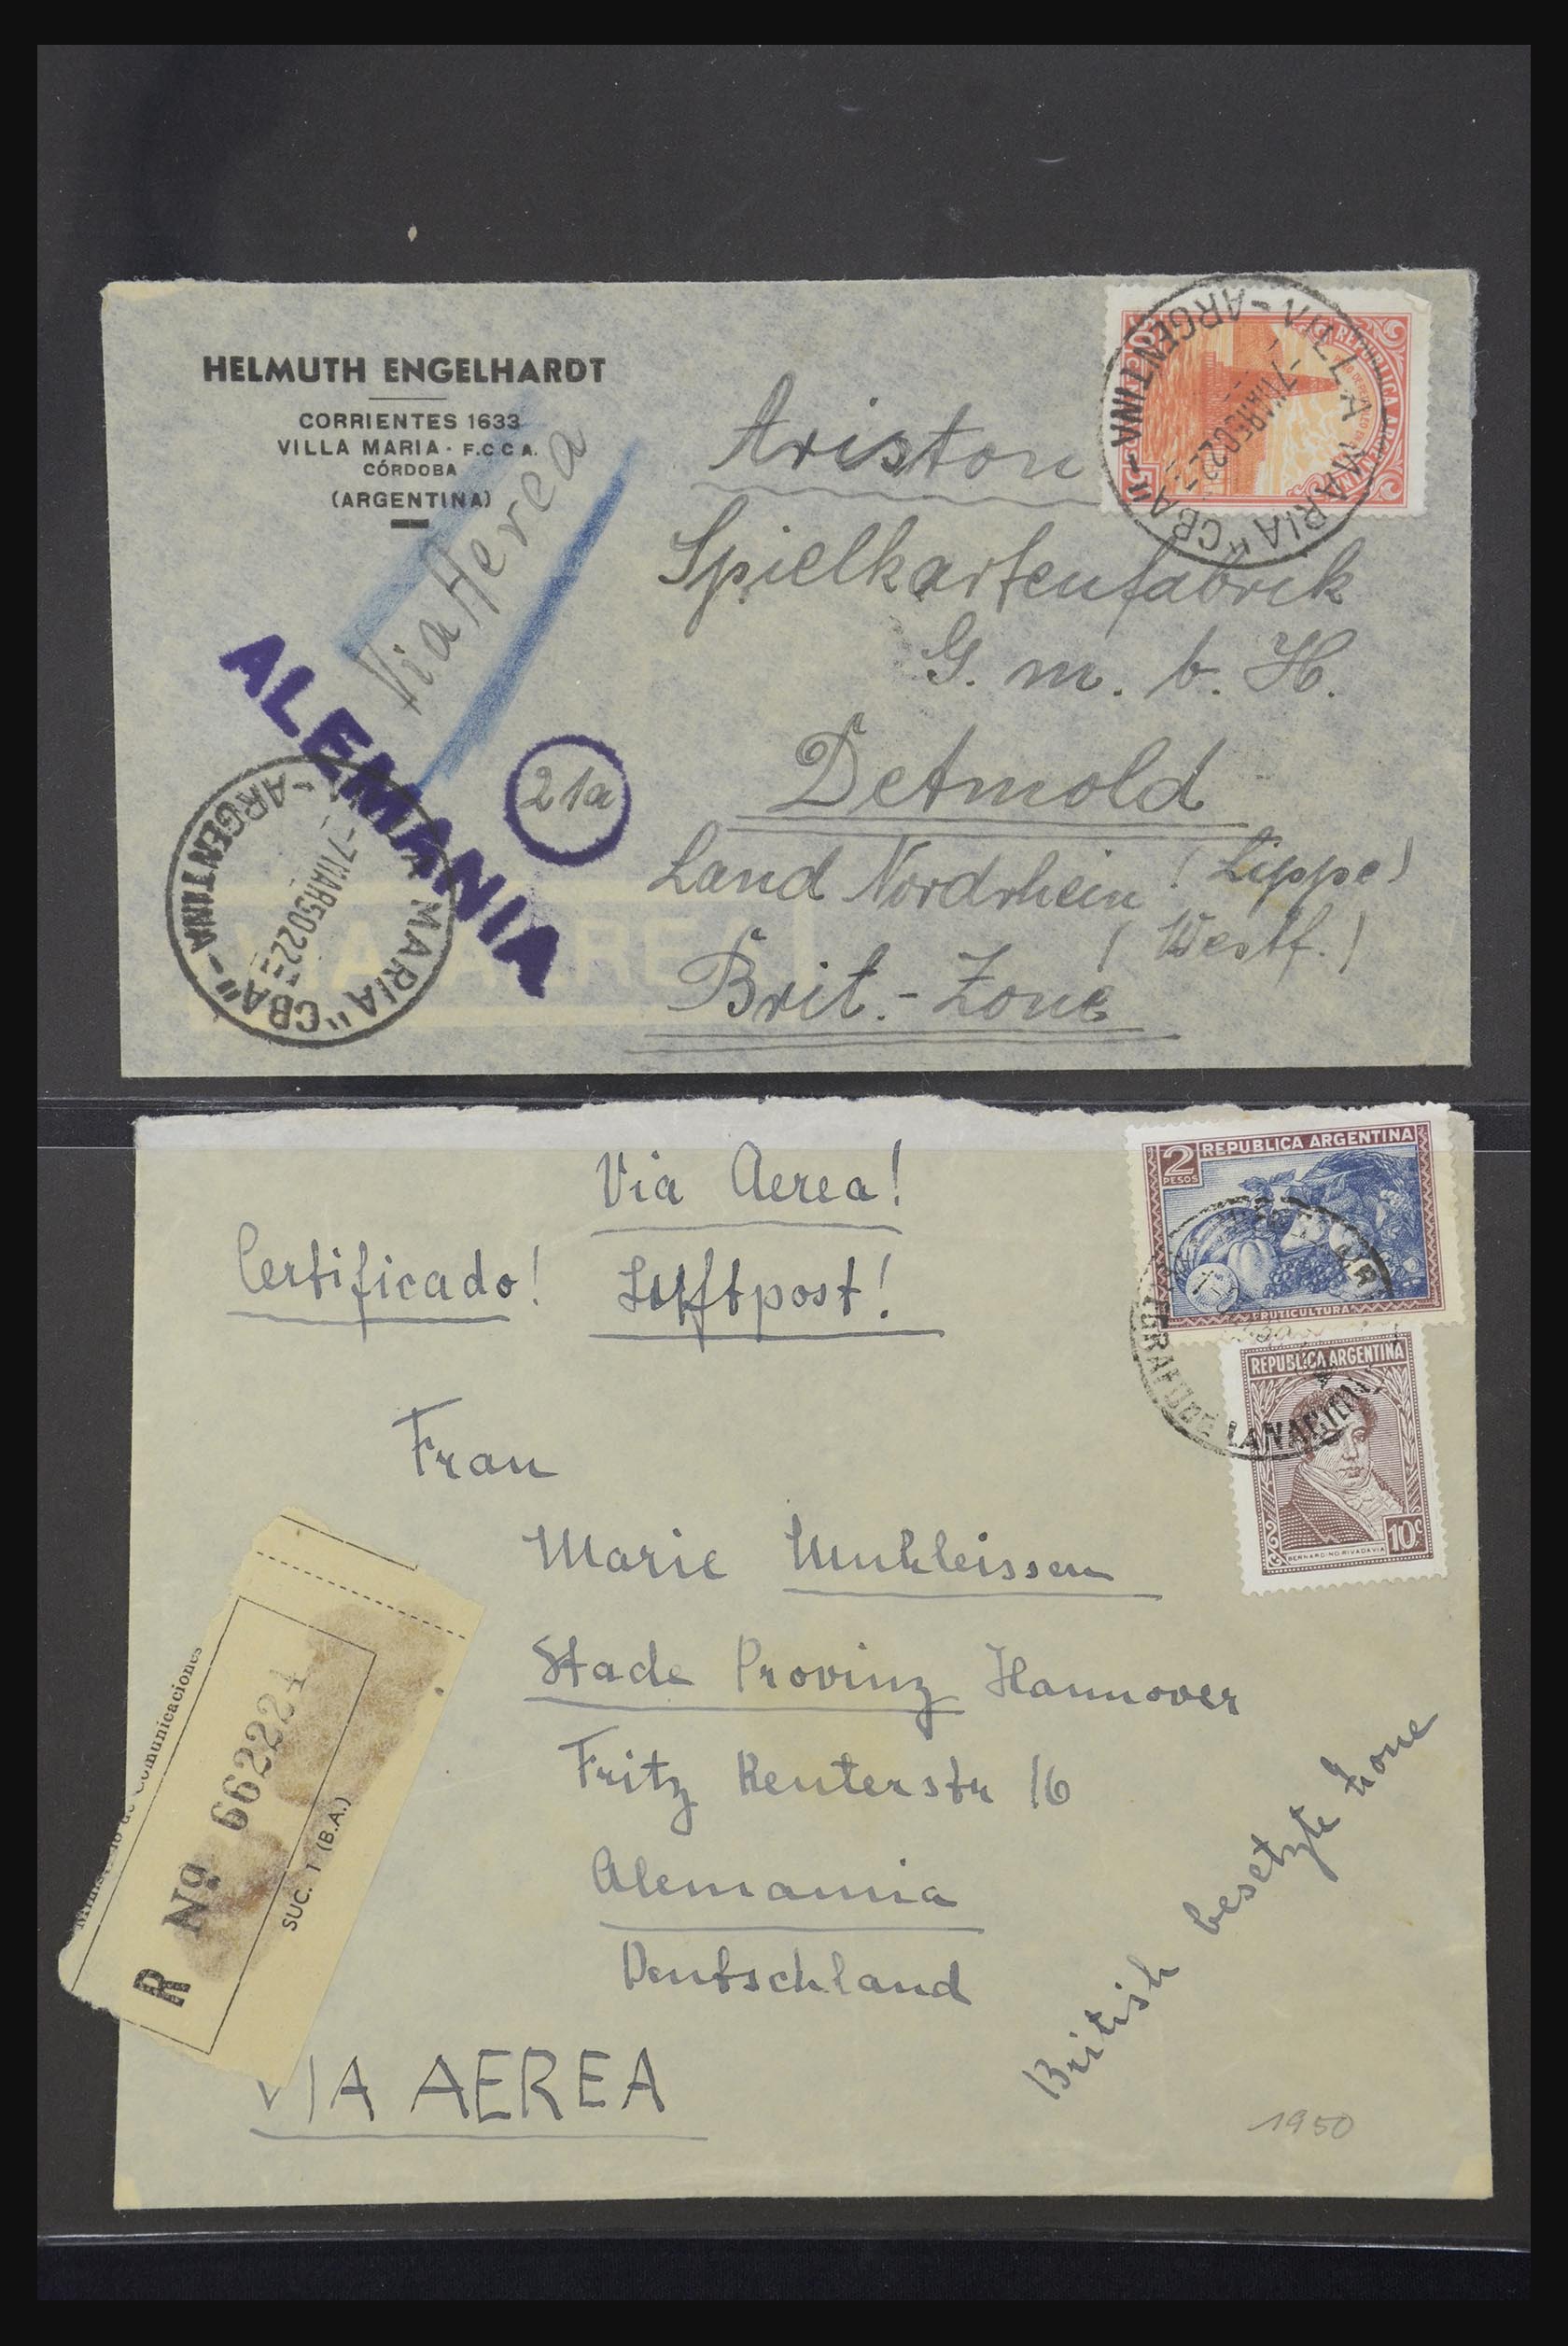 HELMUTH ENGELHARDT
CORRIENTES 1633
VILLA MARIA · F.C.C.A.
CÓRDOBA
(ARGENTINA)
Via Aerea
ALEMANIA
21a
VIA AEREA
MARIA "CBA" - ARGENTINA
-7MAR5022
REPUBLICA ARGENTINA
5
VILLA MARIA "CBA" - ARGENTINA
-7MAR5022
Ariston
Spielkartenfabrik
G. m. b. H.
Detmold
Land Nordrhein (Lippe)
(Westf.)
Brit.-Zone
Via Aerea!
Certificado! Luftpost!
2
PESOS
REPUBLICA ARGENTINA
FRUTICULTURA
REPUBLICA ARGENTINA
10c
BERNARDINO RIVADAVIA
Frau
Marie
Stade Provinz Hannover
Fritz Reuterstr 16
Alemannia
Deutschland
British besetzte Zone
de Comunicaciones
R Nº 662224
SUC. 1 (B.A.)
VIA AEREA
1950